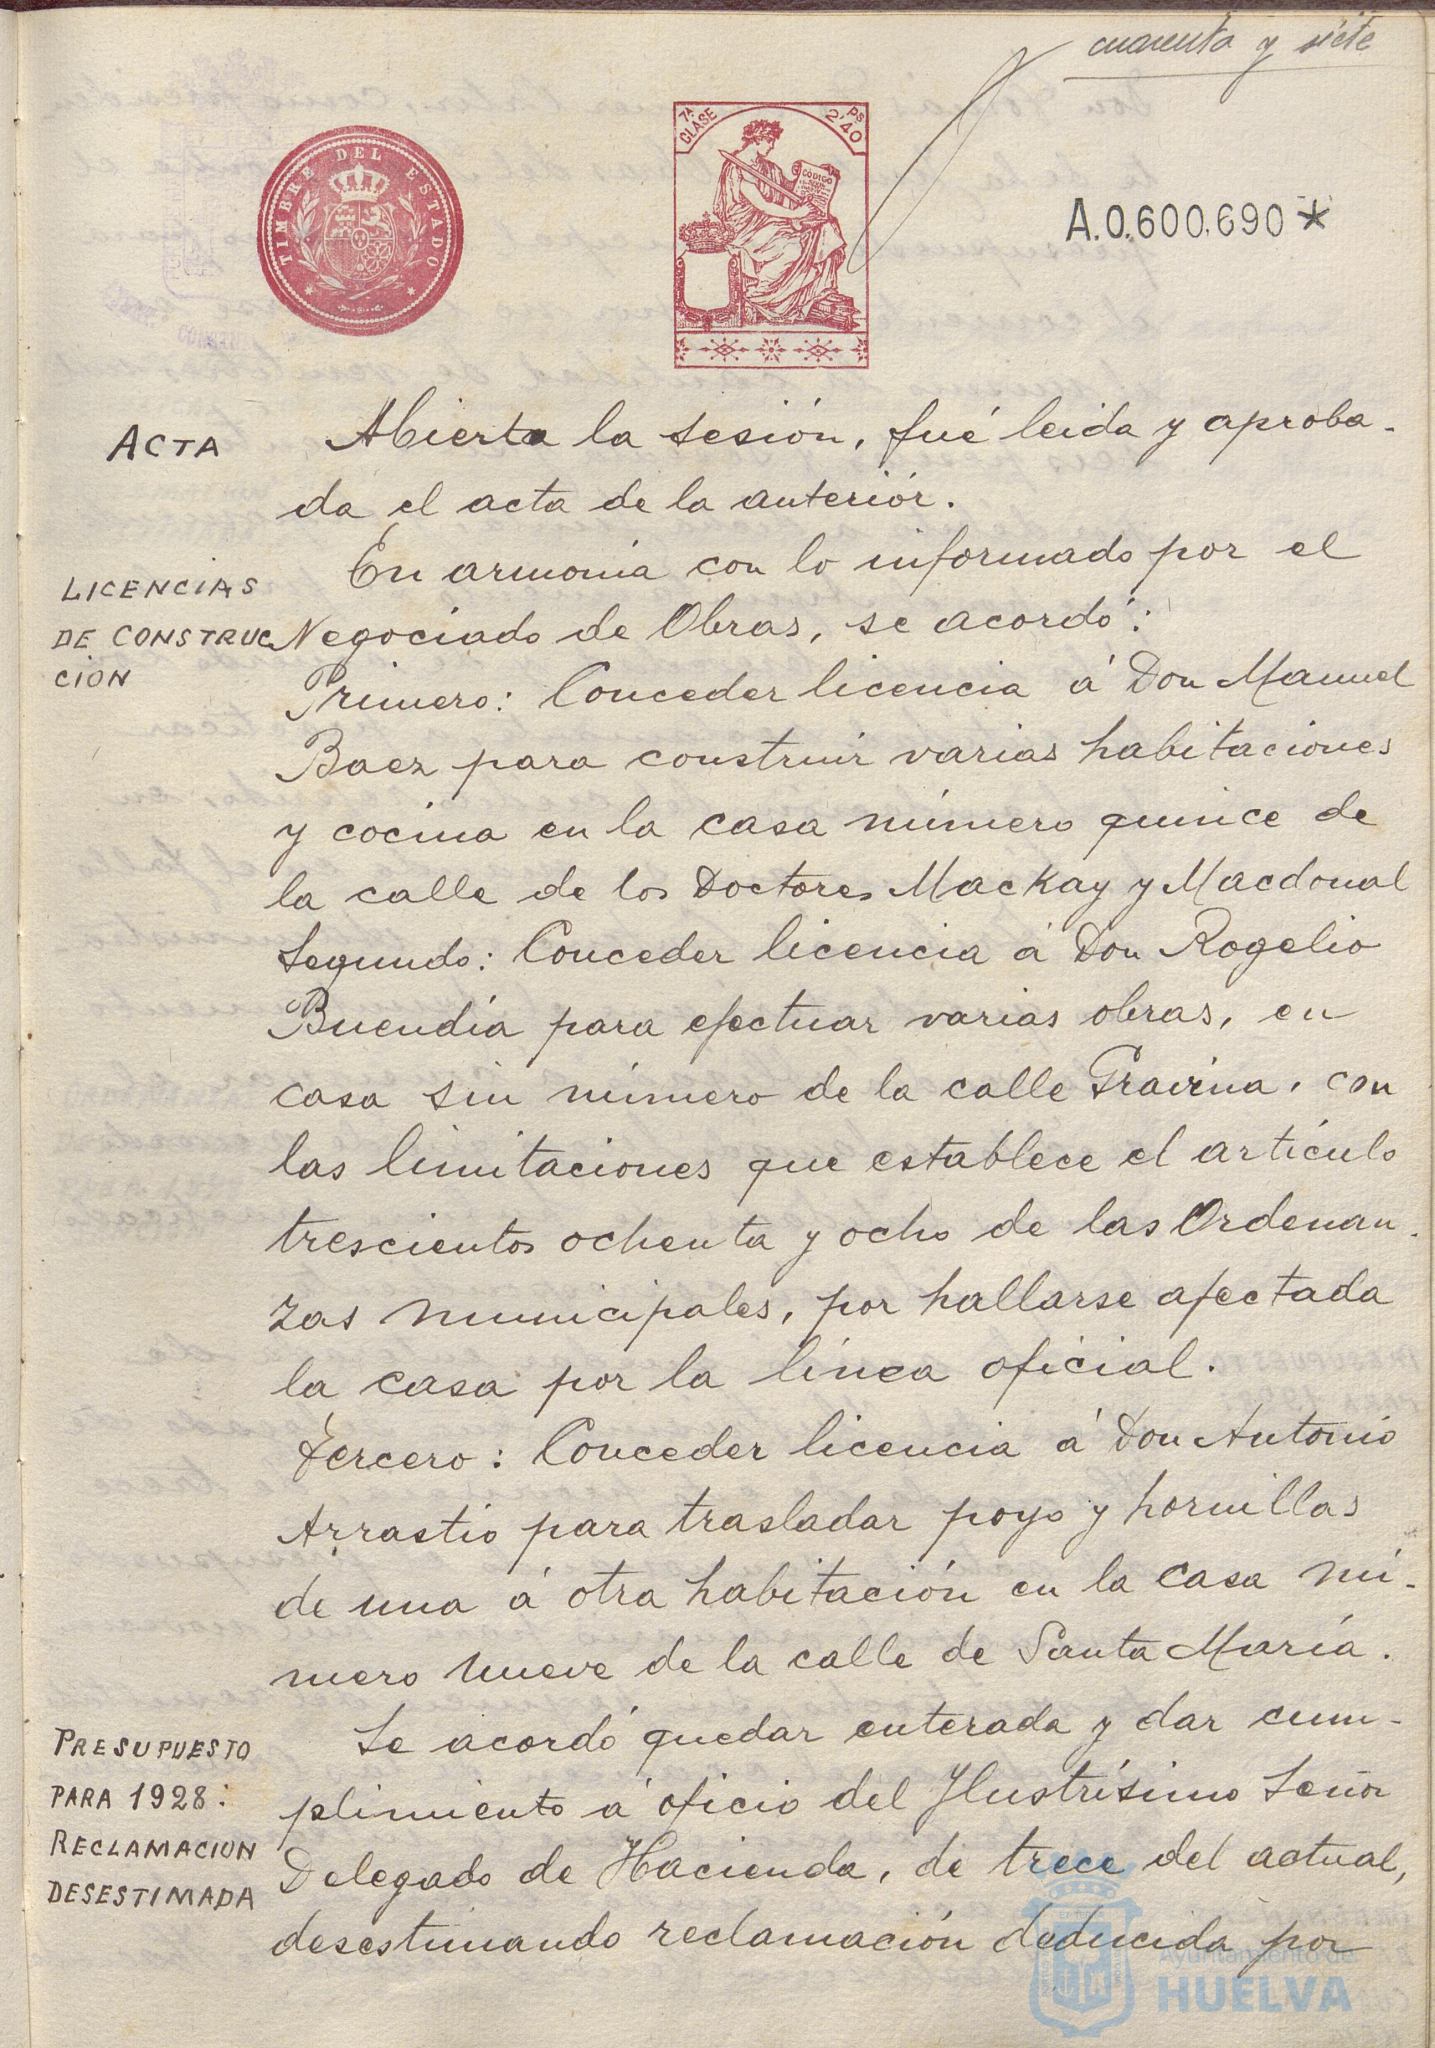 cuarenta y siete
TIMBRE DEL ESTADO
7ª CLASE
PS 2'40
CÓDIGO
A.0.600.690*
ACTA
Abierta la sesión, fué leida y aproba-
da el acta de la anteriór.
LICENCIAS
DE CONSTRUC
CION
En armonía con lo informado por el
Negociado de Obras, se acordó:
Primero: Conceder licencia á Don Manuel
Baez para construir varias habitaciones
y cocina en la casa número quince de
la calle de los Doctores Mackay y Macdonal
Segundo: Conceder licencia á Don Rogelio
Buendía para efectuar varias obras, en
casa sin número de la calle Gravina, con
las limitaciones que establece el artículo
trescientos ochenta y ocho de las Ordenan-
zas municipales, por hallarse afectada
la casa por la línea oficial.
Tercero: Conceder licencia á Don Antonio
Arrastio para trasladar poyo y hornillas
de una á otra habitación en la casa nú-
mero nueve de la calle de Santa María.
PRESUPUESTO
PARA 1928:
RECLAMACION
DESESTIMADA
Se acordó quedar enterada y dar cum-
plimiento á oficio del Ilustrísimo Señor
Delegado de Hacienda, de trece del actual,
desestimando reclamación deducida por
Ayuntamiento de
HUELVA